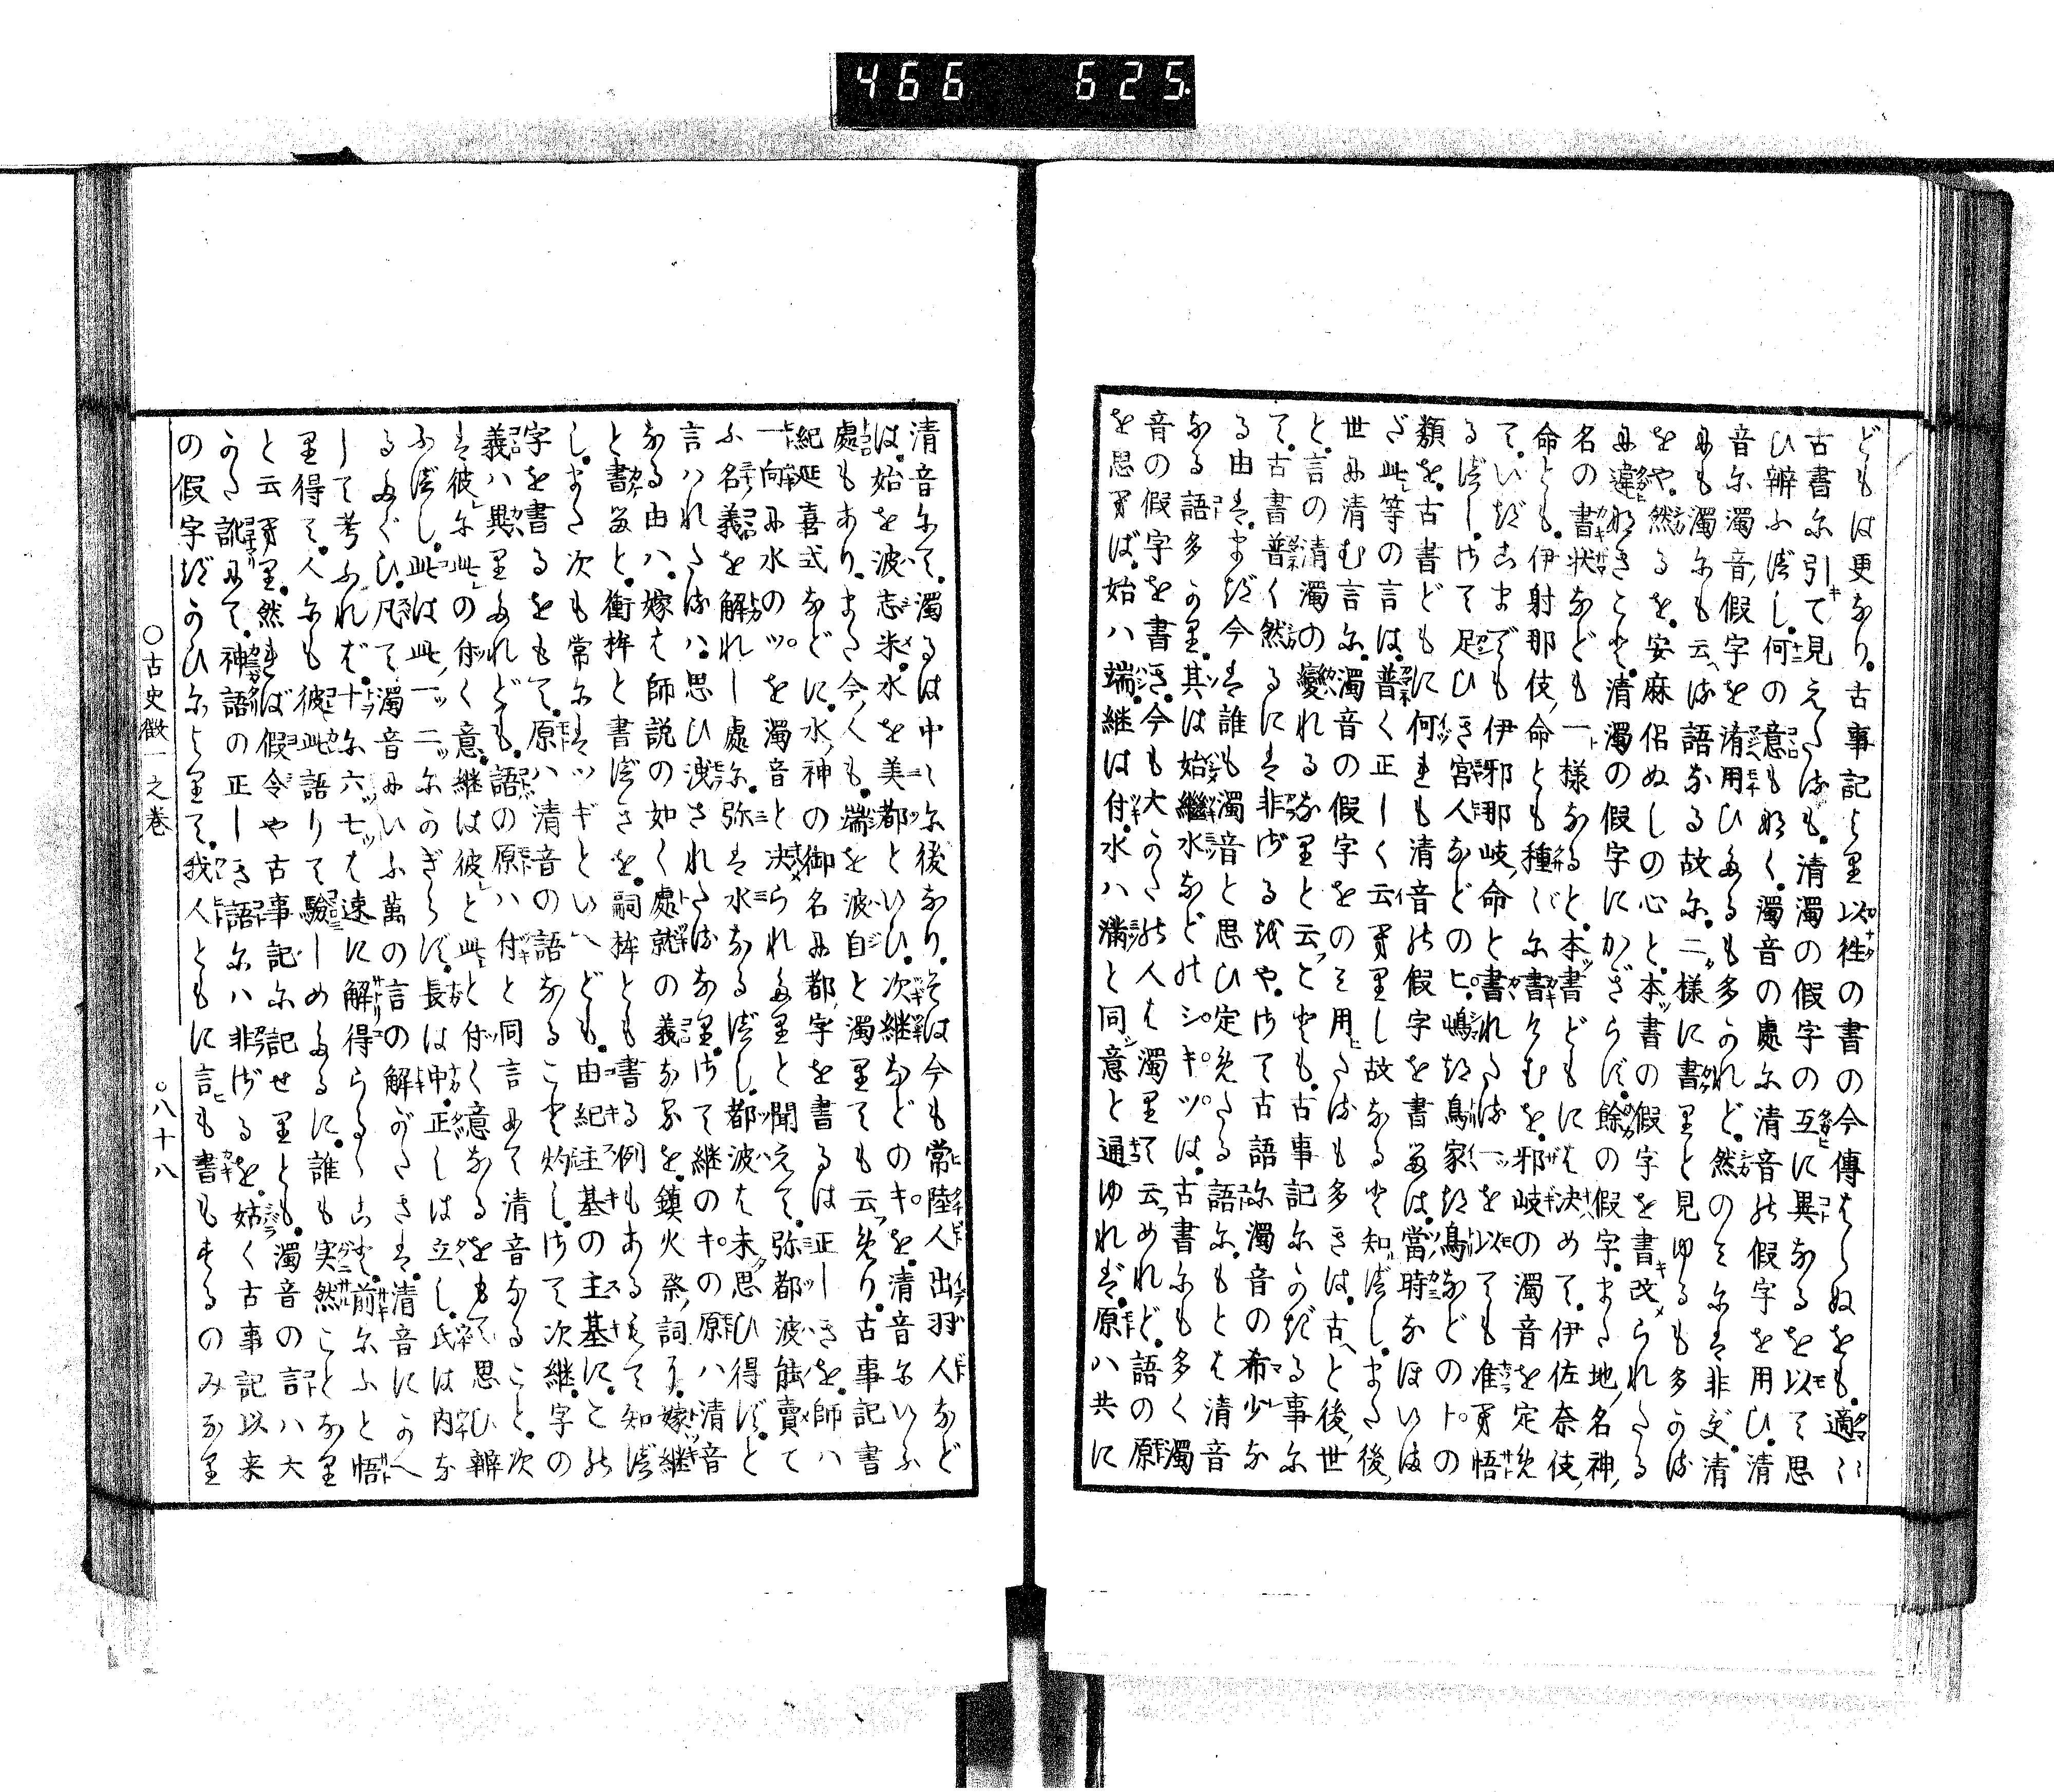 466 625
どもは更なり。古事記より以往の書の今傳はらぬをも。適々
古書に引て見えたるも。清濁の假字の互に異なるを以て思
ひ辨ふべし。何の意もなく。濁音の處に清音の假字を用ひ。清
音に濁音假字を淆用ひたるも多かれど。然のみには非ず。清
にも濁にも云る語なる故に。二様に書りと見ゆるも多かる
をや。然るを。安麻侶ぬしの心と。本書の假字を書改られたる
に違なきこと。清濁の假字にかぎらず。餘の假字。また地名神
名の書状なども一様なると。本書どもには決めて。伊佐奈伎
命とも。伊射那伎命とも種々に書けむを。邪岐の濁音を定め
て。いづこまでも伊邪那岐命と書れたる一を以ても准へ悟
るべし。さて足ひき宮人などのヒ。嶋つ鳥家つ鳥などのトの
類を。古書どもに何れも清音の假字を書たは。當時なほいま
だ此等の言は。普く正しく云へりし故なると知べし。また後
世に清む言に。濁音の假字をのみ用たるも多きは。古と後世
と。言の清濁の變れるなりと云とも。古事記にかぎる事に
て。古書普く然るには非ざるをや。さて古語に濁音の希少な
る由は。まづ今は誰も濁音と思ひ定めたる語に。もとは清音
なる語多かり。其は始繼水などのシキツは。古書にも多く濁
音の假字を書き。今も大かたの人は濁りて云めれど。語の原
を思へば。始ハ端。継は付。水ハ満と同意と通ゆれば。原ハ共に
清音にて。濁るは中々に後なり。そは今も常陸人出羽人など
は。始を波志米。水を美都といひ。次継などのキを。清音にいふ
處もあり。また今くも。端を波自と濁りても云めり。古事記書
紀延喜式などに。水神の御名に都字を書るは正しきを。師ハ
一向に水のツを濁音と決られたりと聞えて。弥都波能賣て
ふ名義を解れし處に。弥は水なるべし。都波は未思ひ得ずと
言ハれたるハ。思ひ洩されたるなり。さて継のキの原ハ清音
なる由ハ。嫁は師説の如く處就の義なるを。鎮火祭詞に。嫁継
と書たと。衝桙と書べきを。嗣桙とも書る例もあるもて知べ
し。また次も常にはツギといへども。由紀主基の主基に。この
字を書るをもて。原ハ清音の語なること灼し。さて次継字の
義ハ異りたれども。語の原ハ付と同言にて清音なること。次
は彼に此の付く意。継は彼と此と付く意なるをもて思ひ辨
ふべし。此は此一ッ二ッにかぎらず。長は中。正しは立し。氏は内な
るたぐひ。凡て濁音にいふ萬の言の解がたきは。清音にかへ
して考ふれば。十に六七は速に解得らるゝこと。前にふと悟
り得て。人にも彼此語りて驗しめたるに。誰も実然ことなり
と云へり。然れば假令や古事記に記せりとも。濁音の言ハ大
かた訛にて。神語の正しき語にハ非ざるを。姑く古事記以来
の假字づかひによりて。我人ともに言も書もするのみなり
○古史徴一之巻
○八十八